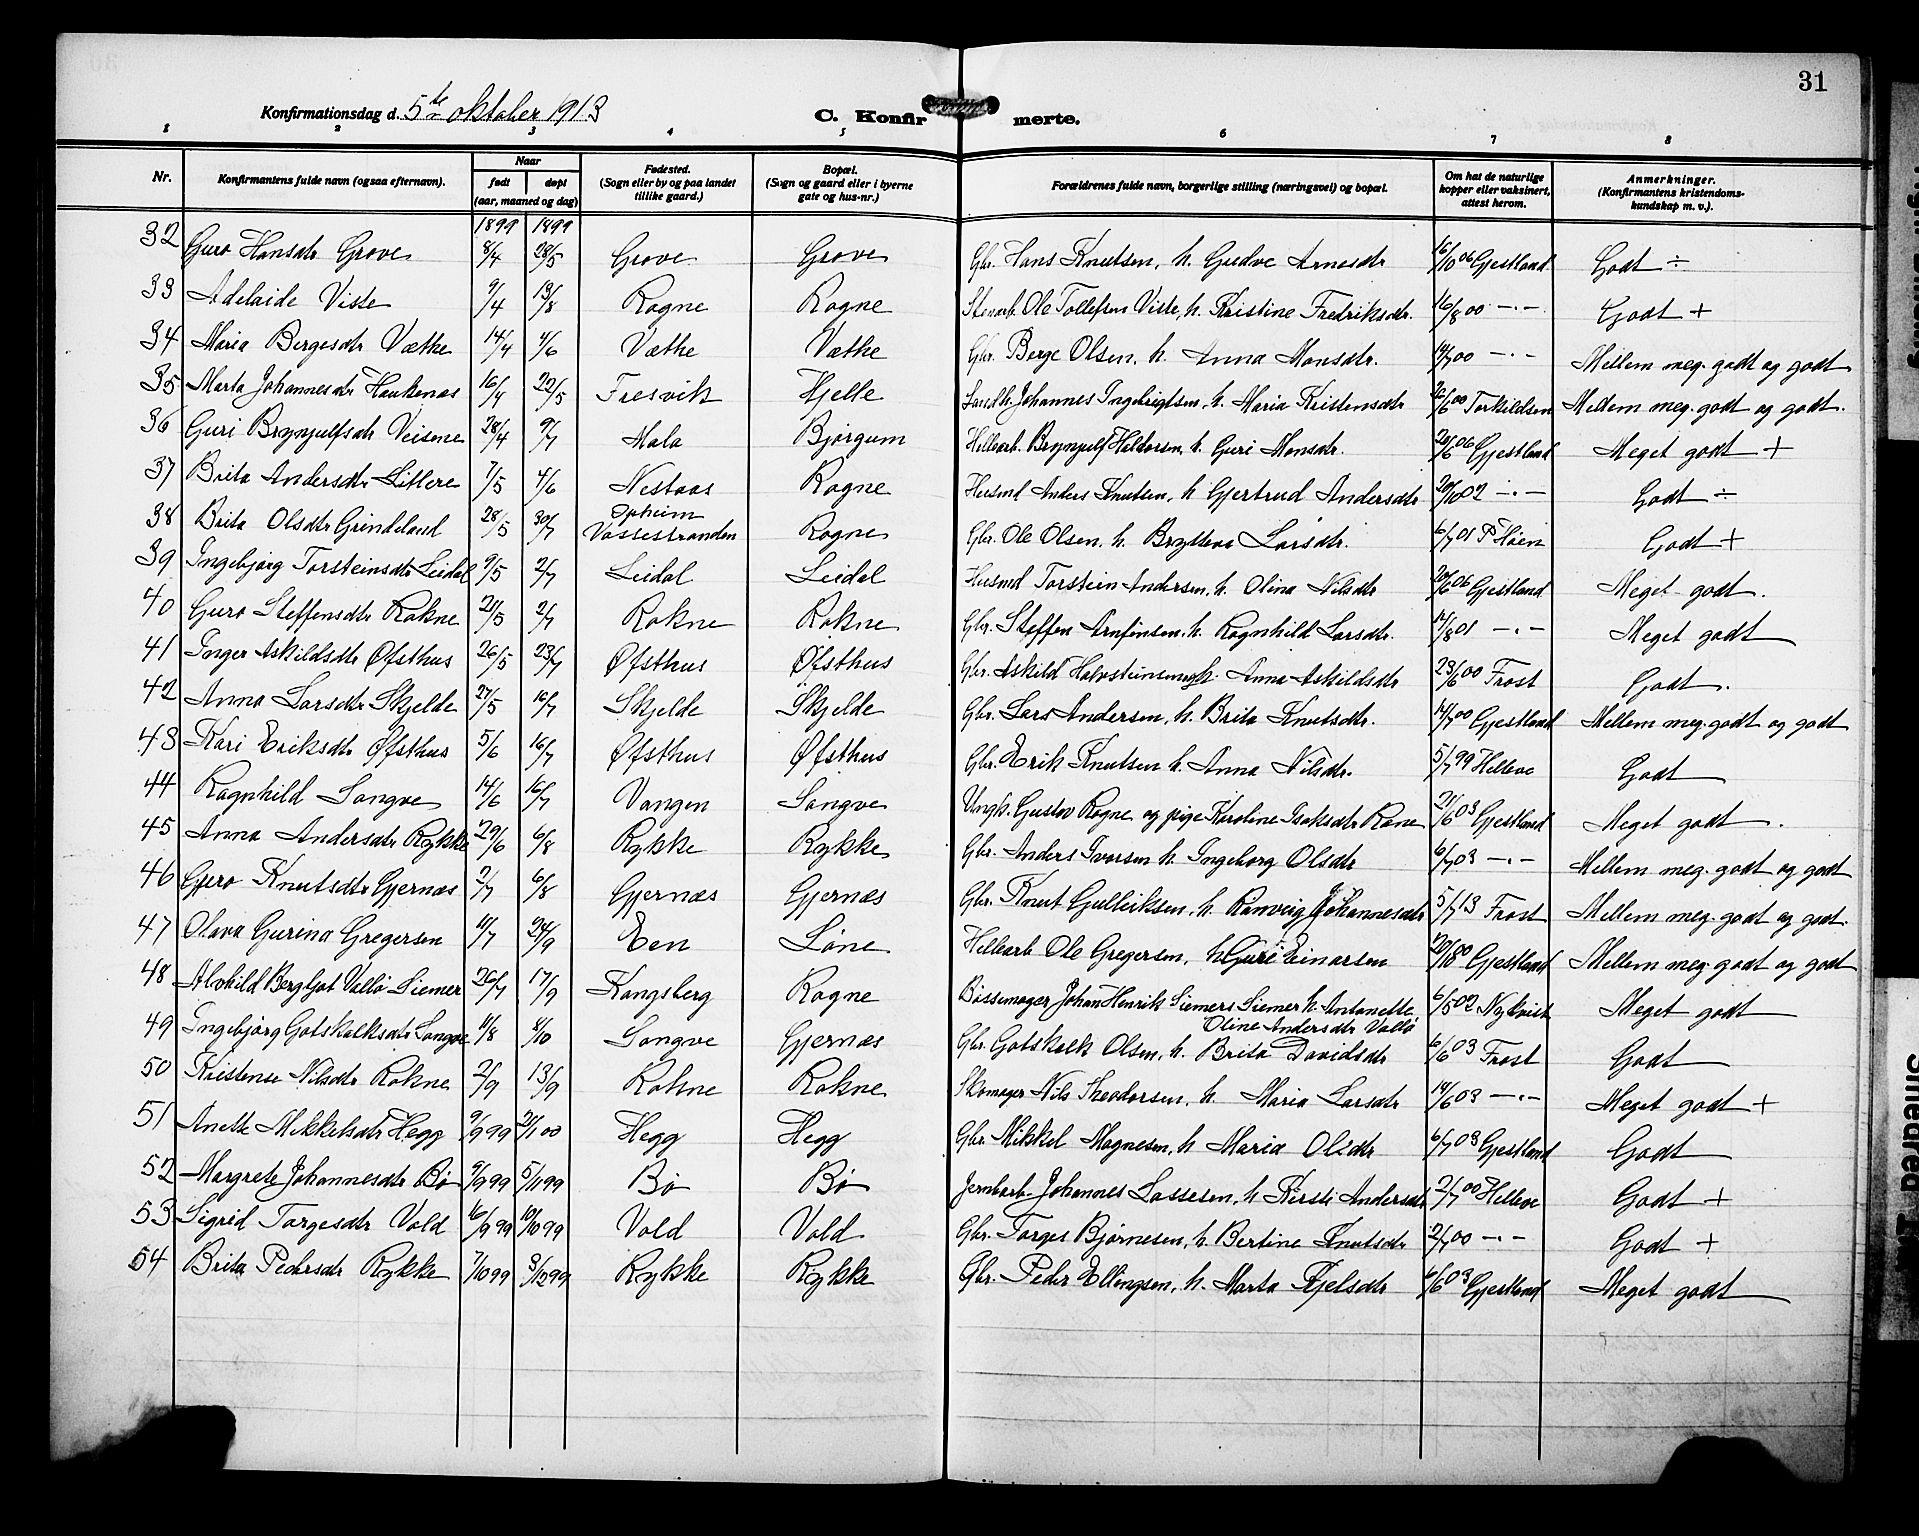 31
Konfirmationsdag d. 5te oktober 1913
C. Konfirmerte.
1 2 3 4 5 6 7 8
Nr. Konfirmantens fulde navn (ogsaa efternavn). Naar født døpt (aar, maaned og dag) Fødested. (Sogn eller by og paa landet tillike gaard.) Bopæl. (Sogn og gaard eller i byerne gate og hus-nr.) Forældrenes fulde navn, borgerlige stilling (næringsvei) og bopæl. Om hat de naturlige kopper eller vaksinert, attest herom. Anmerkninger. (Konfirmantens kristendoms-kundskap m. v.).
1899 1899
32 Guro Hansdtr Grove 8/4 28/5 Grove Grove Gbr. Hans Knutsen, h. Gudve Arnesdtr 16/10 06 Gjestland Godt ÷
33 Adelaide Viste 9/4 13/8 Rogne Rogne Stenarb. Ole Tollefsen Viste, h. Kristine Fredriksdtr. 16/8 00 -"- Godt +
34 Maria Bergesdtr Væthe 14/4 4/6 Væthe Væthe Gbr. Berge Olsen, h. Anna Monsdtr. 14/7 00 -"- Mellem meg. godt og godt
35 Marta Johannesdtr Haukenæs 16/4 22/5 Fresvik Hjelle Johannes Ingebrigtsen, h. Maria Kristensdtr 26/6 00 Torkildsen Mellem meg. godt og godt.
36 Guri Brynjulfsdtr Veisene 28/4 9/7 Mala Bjørgum Hellearb. Brynjulf Haldorsen, h. Guri Monsdtr. 20/6 06 Gjestland Meget godt +
37 Brita Andersdtr Littere 7/5 4/6 Nestaas Rogne Husmd Anders Knutsen, h. Gjertrud Andersdtr 20/10 02 -"- Godt ÷
38 Brita Olsdtr Grindeland 28/5 30/7 Opheim Vossestranden Rogne Gbr. Ole Olsen, h. Brytteva Larsdtr. 6/7 01 P Høien Godt +
39 Ingebjørg Torsteinsdtr Leidal 9/5 2/7 Leidal Leidal Husmd Torstein Andersen, h. Olina Nilsdtr 20/6 06 Gjestland Meget godt.
40 Guro Steffensdtr Rokne 21/5 2/7 Rokne Rokne Gbr. Steffen Arnfinsen, h. Ragnhild Larsdtr. 14/8 01 -"- Meget godt
41 Inger Askildsdtr Øfsthus 26/5 23/7 Øfsthus Øfsthus Gbr. Askild Halvsteinsen og h. Anna Askildsdtr 23/6 00 Frost Godt.
42 Anna Larsdtr Skjelde 27/5 16/7 Skjelde Skjelde Gbr. Lars Andersen, h. Brita Knutsdtr. 14/7 00 Gjestland Mellem meg. godt og godt
43 Kari Eriksdtr Øfsthus 5/6 16/7 Øfsthus Øfsthus Gbr. Erik Knutsen h. Anna Nilsdtr. 5/7 99 Helleve Godt
44 Ragnhild Songve 14/6 16/7 Vangen Songve Ungk. Gustav Rogne og pige Karoline Isaksdtr Røne 21/6 03 Gjestland Meget godt.
45 Anna Andersdtr Rykke 29/6 6/8 Rykke Rykke Gbr. Anders Iversen h. Ingeborg Olsdtr 6/7 03 -"- Mellem meg. godt og godt
46 Guro Knutsdtr Gjernæs 2/7 6/8 Gjernæs Gjernæs Gbr. Knut Gulleiksen, h. Ranveig Johannesdtr 5/7 13 Frost Mellem meg. godt og godt.
47 Olava Gurina Gregersen 11/7 24/9 Een Løne Hellearb Ole Gregersen, h Guri Einarsen 20/10 00 Gjestland Mellem meg. godt og godt
48 Alvhild Bergljot Vallø Siemer 26/7 17/9 Kongsberg Rogne Bøssemager Johan Henrik Siemers Siemer h. Antonette Oline Andersdtr Vallø 6/5 02 Nykvist Meget godt
49 Ingebjørg Gotskalksdtr Songve 11/8 4/10 Songve Gjernæs Gbr. Gotskalk Olsen, h. Brita Davidsdtr 6/6 03 Frost Godt
50 Kristense Nilsdtr Rokne 2/9 13/9 Rokne Rokne Skomager Nils Theodorsen, h. Maria Larsdtr 14/6 03 -"- Meget godt +
51 Anette Mikkelsdtr Hegg 9/9 99 21/1 00 Hegg Hegg Gbr. Mikkel Magnesen, h Maria Olsdtr 6/7 03 Gjestland Godt
52 Margrete Johannesdtr Bø 9/9 99 5/11 99 Bø Bø Jernbarb. Johannes Lassesen, h Kirsti Andersdtr 2/7 00 Helleve Godt +
53 Sigrid Torgesdtr Vold 16/9 99 10/10 99 Vold Vold Gbr. Torges Bjørnesen, h. Bertine Knutsdtr 2/7 00 -"- Godt +
54 Brita Pedersdtr Rykke 7/10 99 3/12 99 Rykke Rykke Gbr. Peder Ellingsen, h. Marta Kjelsdtr 6/6 03 Gjestland Meget godt